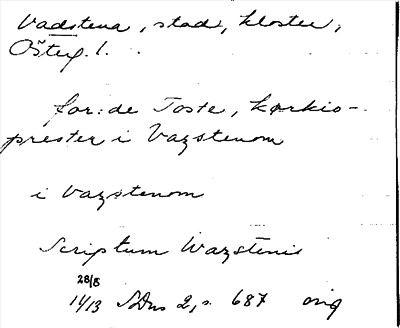 Vadstena, stad, kloster,
Österg. l.
for: de Toste, kørkio-
prester i Vazstenom
i Vazstenom
Scriptum Wazstenis
28/8
1413 SDns 2, s. 687 orig